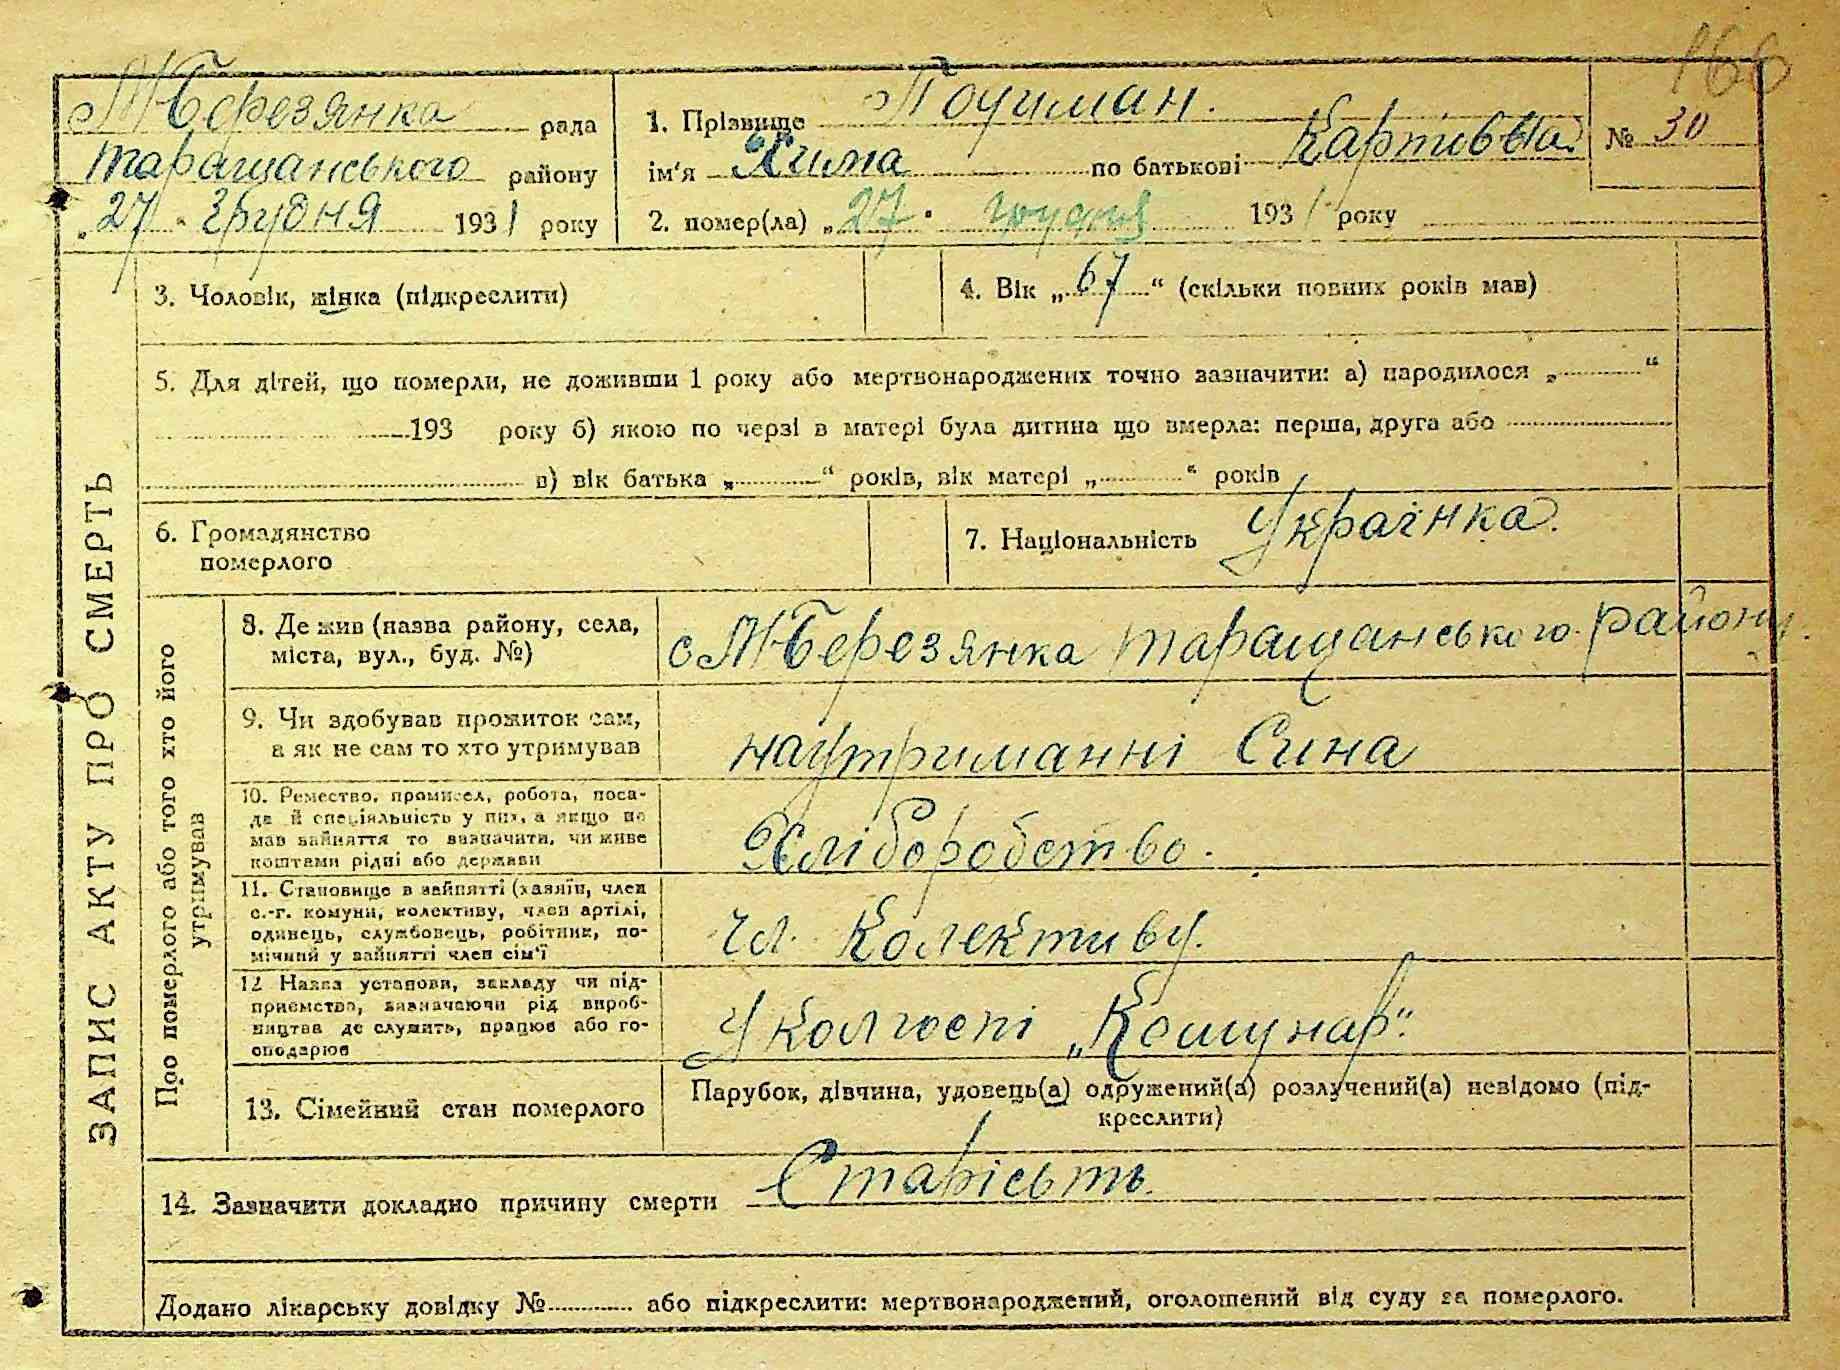 166
М Березянка рада
Таращанського району
„27" Грудня 1931 року
1. Прізвище Почиман.
ім'я Хима по батькові Картивна
№ 30
2. помер(ла) „27" грудня 1931 року
3. Чоловік, жінка (підкреслити)
4. Вік „67" (скільки повних років мав)
5. Для дітей, що померли, не доживши 1 року або мертвонароджених точно зазначити: а) народилося „ "
193 року б) якою по черзі в матері була дитина що вмерла: перша, друга або
в) вік батька „ " років, вік матері „ " років
6. Громадянство
померлого
7. Національність Українка.
ЗАПИС АКТУ ПРО СМЕРТЬ
Про померлого або того хто його
утримував
8. Де жив (назва району, села,
міста, вул., буд. №)
с М Березянка Таращанського району.
9. Чи здобував прожиток сам,
а як не сам то хто утримував
на утриманні Сина
10. Ремество, промисел, робота, поса-
да й спеціяльність у них, а якщо не
мав зайняття то зазначити, чи живе
коштами рідні або держави
Хліборобство.
11. Становище в зайнятті (хазяїн, член
с.-г. комуни, колективу, член артілі,
одинець, службовець, робітник, по-
мічний у зайнятті член сім'ї
чл. Колективу.
12 Назва установи, закладу чи під-
приємства, зазначаючи рід вироб-
ництва де служить, працює або го-
сподарює
У колгоспі „Комунар".
13. Сімейний стан померлого
Парубок, дівчина, удовець(а) одружений(а) розлучений(а) невідомо (під-
креслити)
14. Зазначити докладно причину смерти Старісьть.
Додано лікарську довідку № або підкреслити: мертвонароджений, оголошений від суду за померлого.